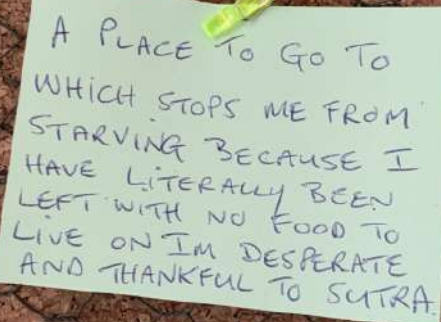 A PLACE TO GO TO
WHICH STOPS ME FROM
STARVING BECAUSE I
HAVE LITERALLY BEEN
LEFT WITH NO FOOD TO
LIVE ON IM DESPERATE
AND THANKFUL TO SUTRA.